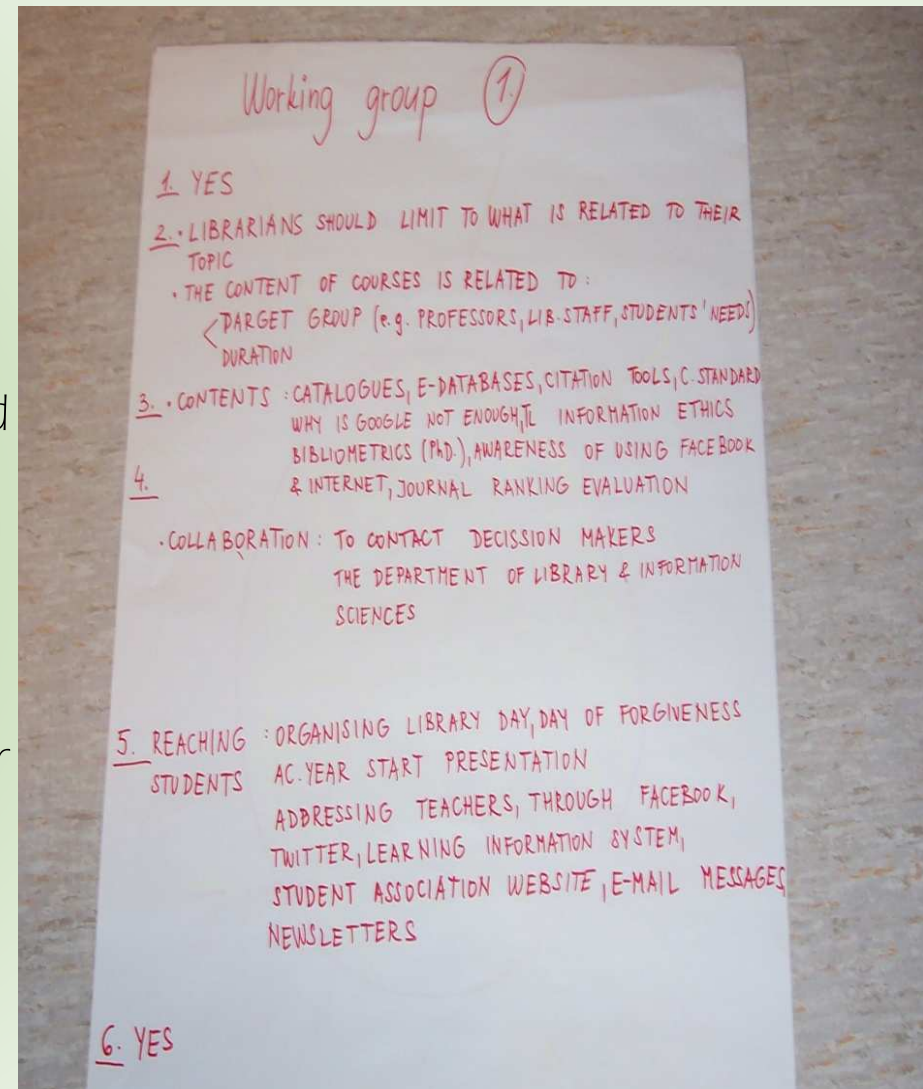 Working group 1.
1. YES
2. • LIBRARIANS SHOULD LIMIT TO WHAT IS RELATED TO THEIR
TOPIC
• THE CONTENT OF COURSES IS RELATED TO :
DARGET GROUP (e.g. PROFESSORS, LIB. STAFF, STUDENTS' NEEDS)
DURATION
3. • CONTENTS : CATALOGUES, E-DATABASES, CITATION TOOLS, C. STANDARD
WHY IS GOOGLE NOT ENOUGH, INFORMATION ETHICS
BIBLIOMETRICS (PhD.), AWARENESS OF USING FACEBOOK
4. & INTERNET, JOURNAL RANKING EVALUATION
• COLLABORATION : TO CONTACT DECISSION MAKERS
THE DEPARTMENT OF LIBRARY & INFORMATION
SCIENCES
5. REACHING : ORGANISING LIBRARY DAY, DAY OF FORGIVENESS
STUDENTS AC. YEAR START PRESENTATION
ADDRESSING TEACHERS, THROUGH FACEBOOK,
TWITTER, LEARNING INFORMATION SYSTEM,
STUDENT ASSOCIATION WEBSITE, E-MAIL MESSAGES,
NEWSLETTERS
6. YES